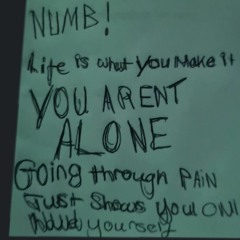 NUMB!
Life is what You Make it
YOU ARENT
ALONE
Going through PAIN
Just Shows You
yourself